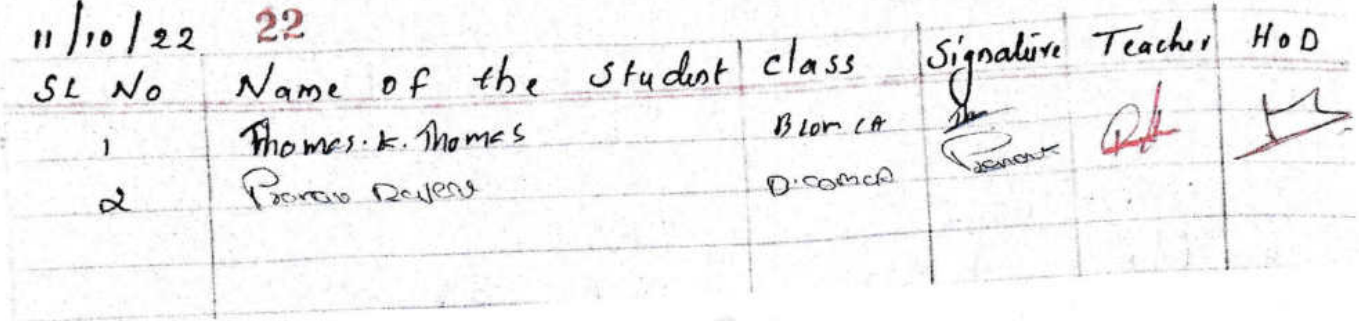 11/10/22 22
SL No Name of the Student class Signature Teacher HoD
1 Thomas. K. Thomas B com CA
2 D.comCA